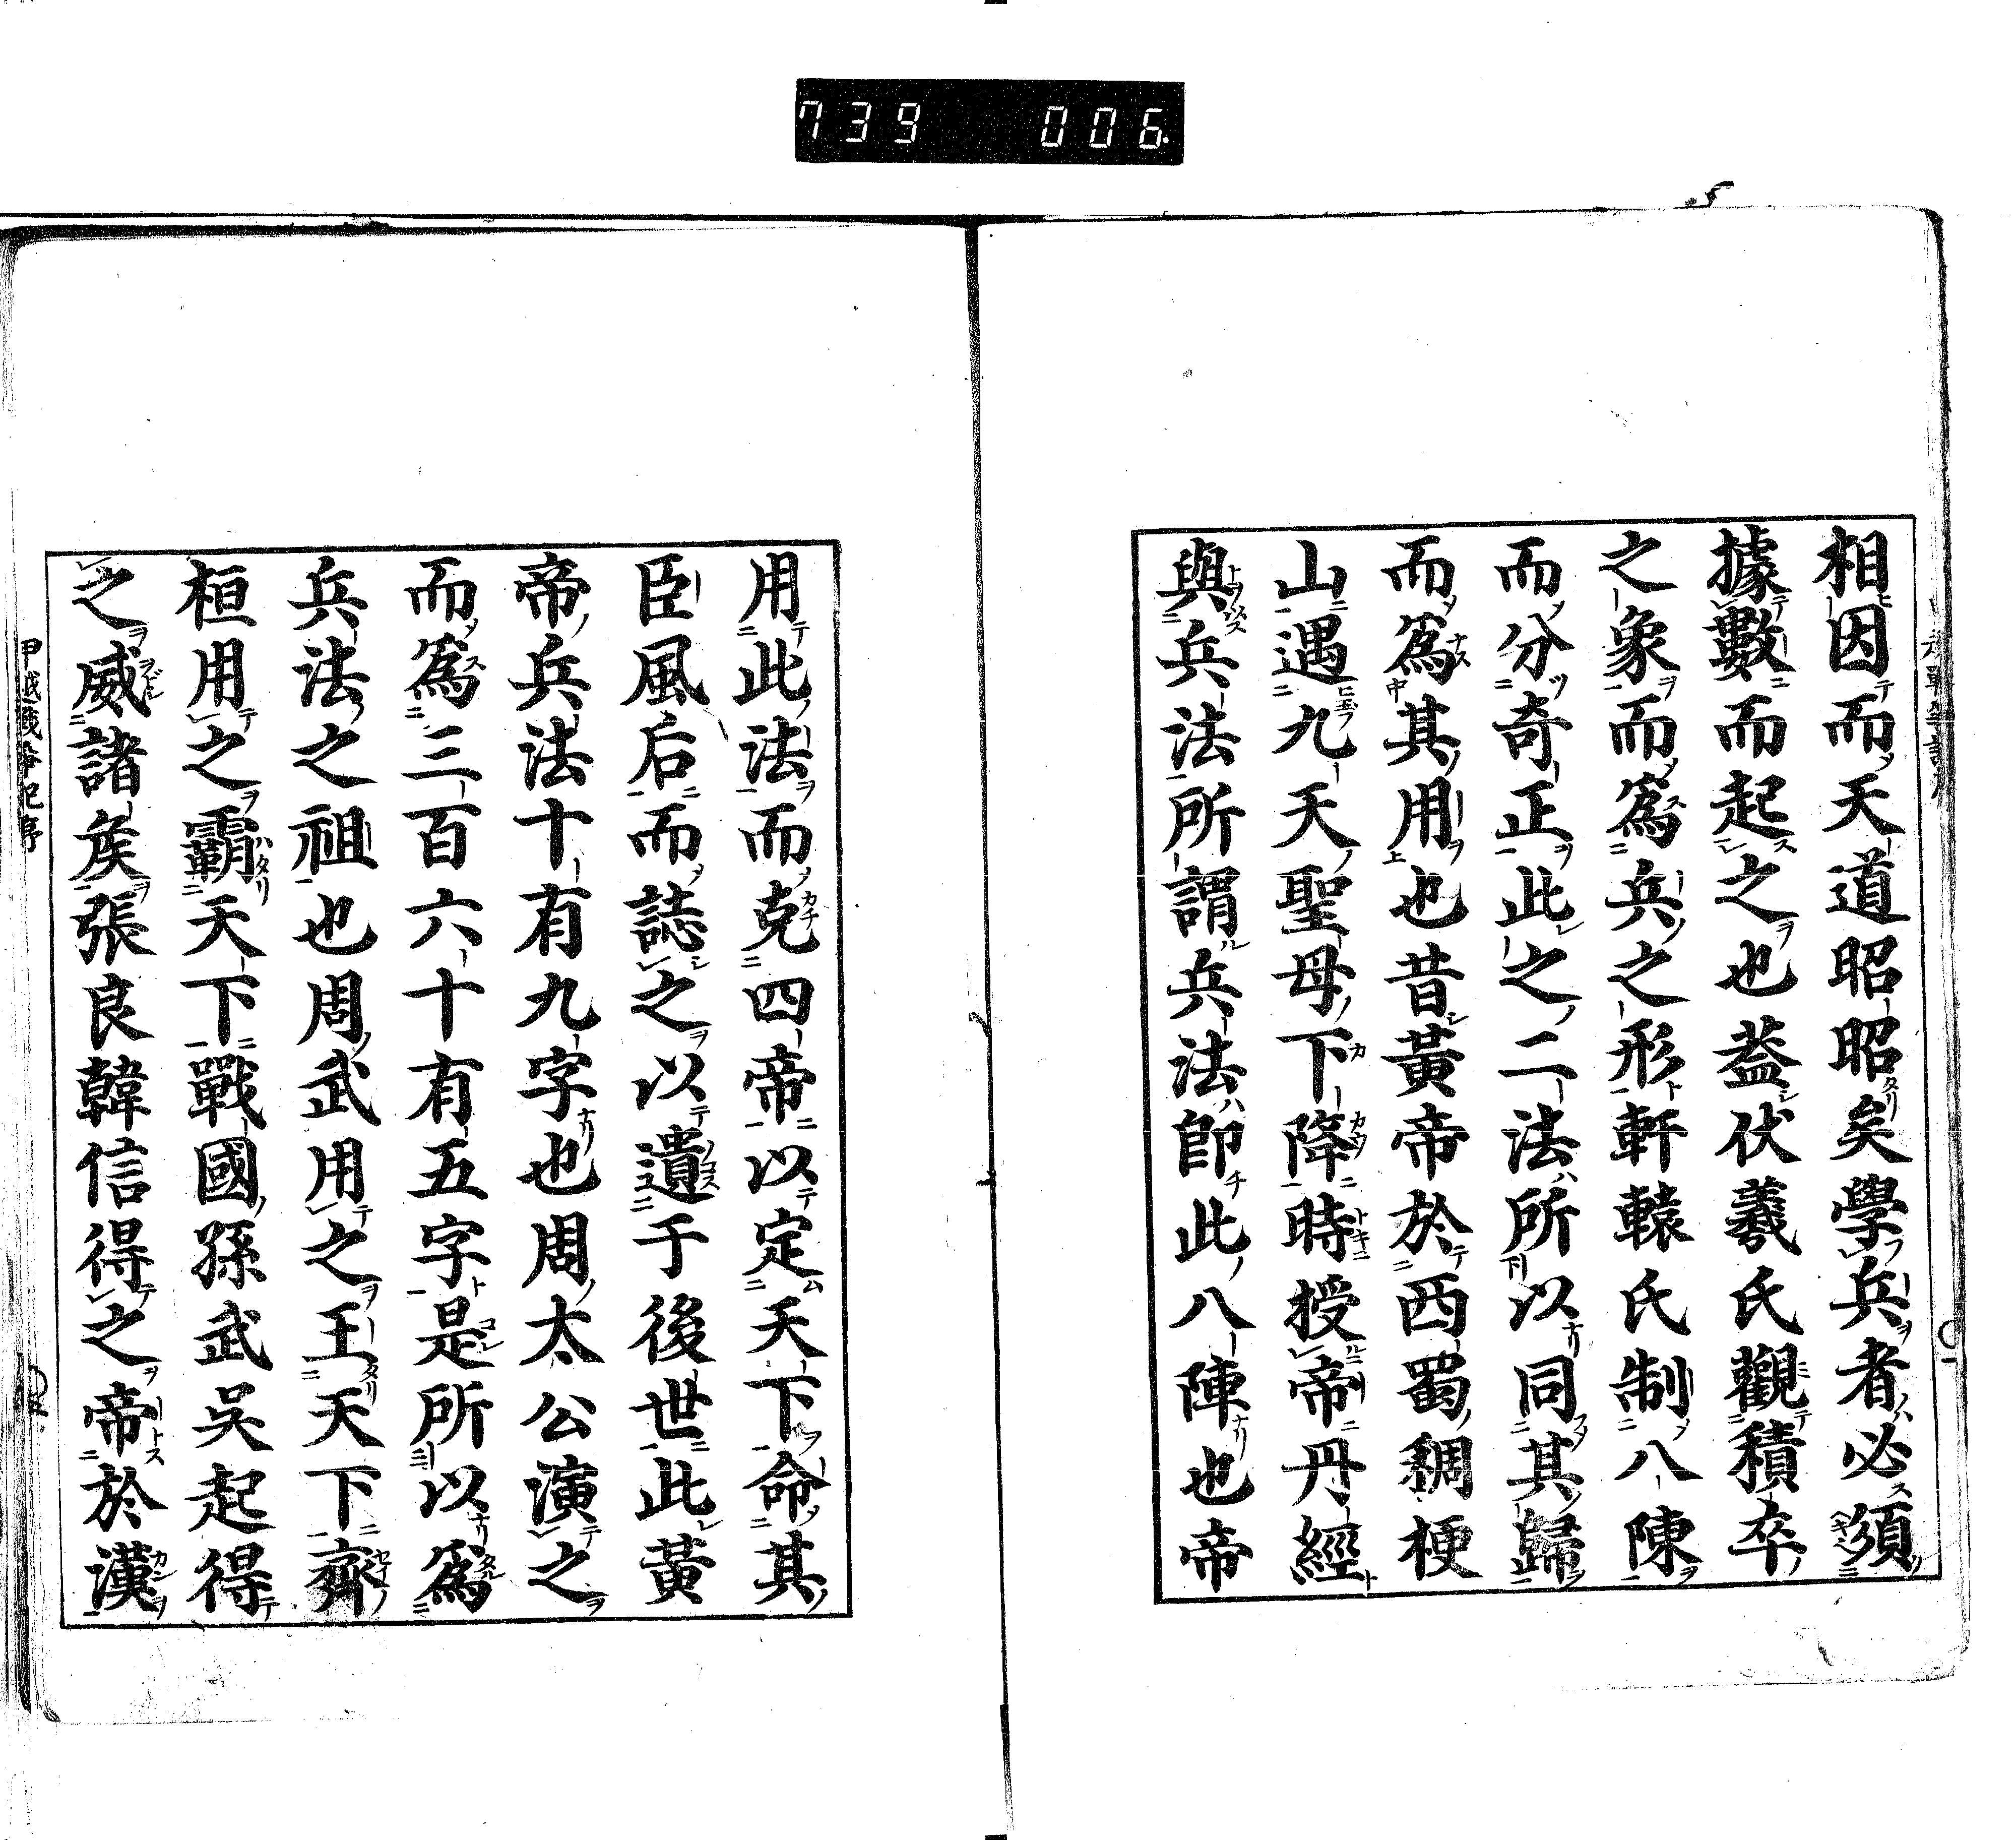 739 006
相因而天道昭昭矣學兵者必須
據數而起之也蓋伏羲氏觀積卒
之象而爲兵之形軒轅氏制八陳
而分奇正此之二法所以同其歸
而爲其用也昔黃帝於西蜀稠梗
山遇九天聖母下降時授帝丹經
與兵法所謂兵法即此八陣也帝
用此法而克四帝以定天下命其
臣風后而誌之以遺于後世此黃
帝兵法十有九字也周太公演之
而爲三百六十有五字是所以爲
兵法之祖也周武用之王天下齊
桓用之霸天下戰國孫武吳起得
之威諸矦張良韓信得之帝於漢
甲越戰爭記序